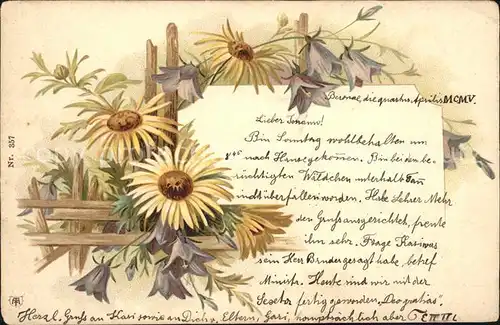 Beromü, die quartus Aprilis MCMV.
Lieber Johann!
Bin Sonntag wohlbehalten um
7⁴⁵ nach Hause gekommen. Bin bei dem be-
rüchtigten Wäldchen unterhalb Tann
nicht überfallen worden. Habe Lehrer Mehr
den Gruß ausgerichtet, freute
ihn sehr. Frage Kari was
sein Herr Bruder gesagt habe, betref
Minist. Heute sind wir mit der
Secetur fertig geworden, "Deo gratias",
Herzl. Gruß an Kari sowie an Dich u. Eltern, Gari, hauptsächlich aber
Nr. 357